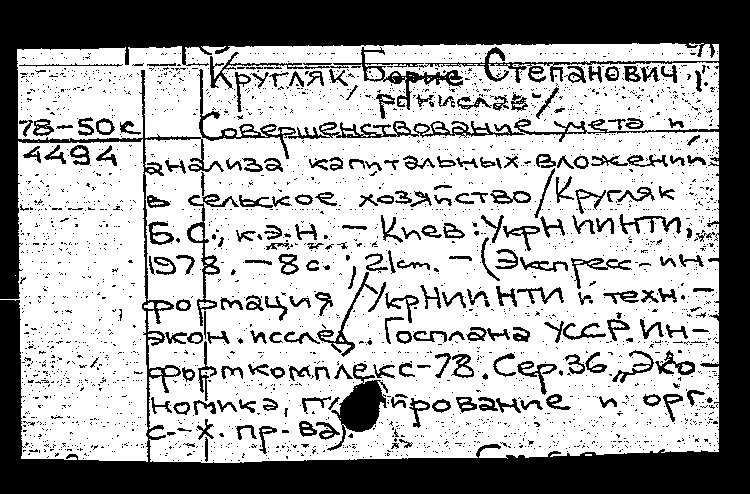 Кругляк, Борис Степанович,
ронислав
78-50с Совершенствование учета и
4494 анализа капитальных вложений
в сельское хозяйство / Кругляк
Б.С., к.э.н. — Киев: УкрНИИНТИ,
1978. — 8 с.; 21 cm. — (Экспресс-ин-
формация / УкрНИИНТИ и техн.-
экон. исслед. Госплана УССР. Ин-
формкомплекс-78. Сер. 36 „Эко-
номика, и орг.
с.-х. пр-ва).